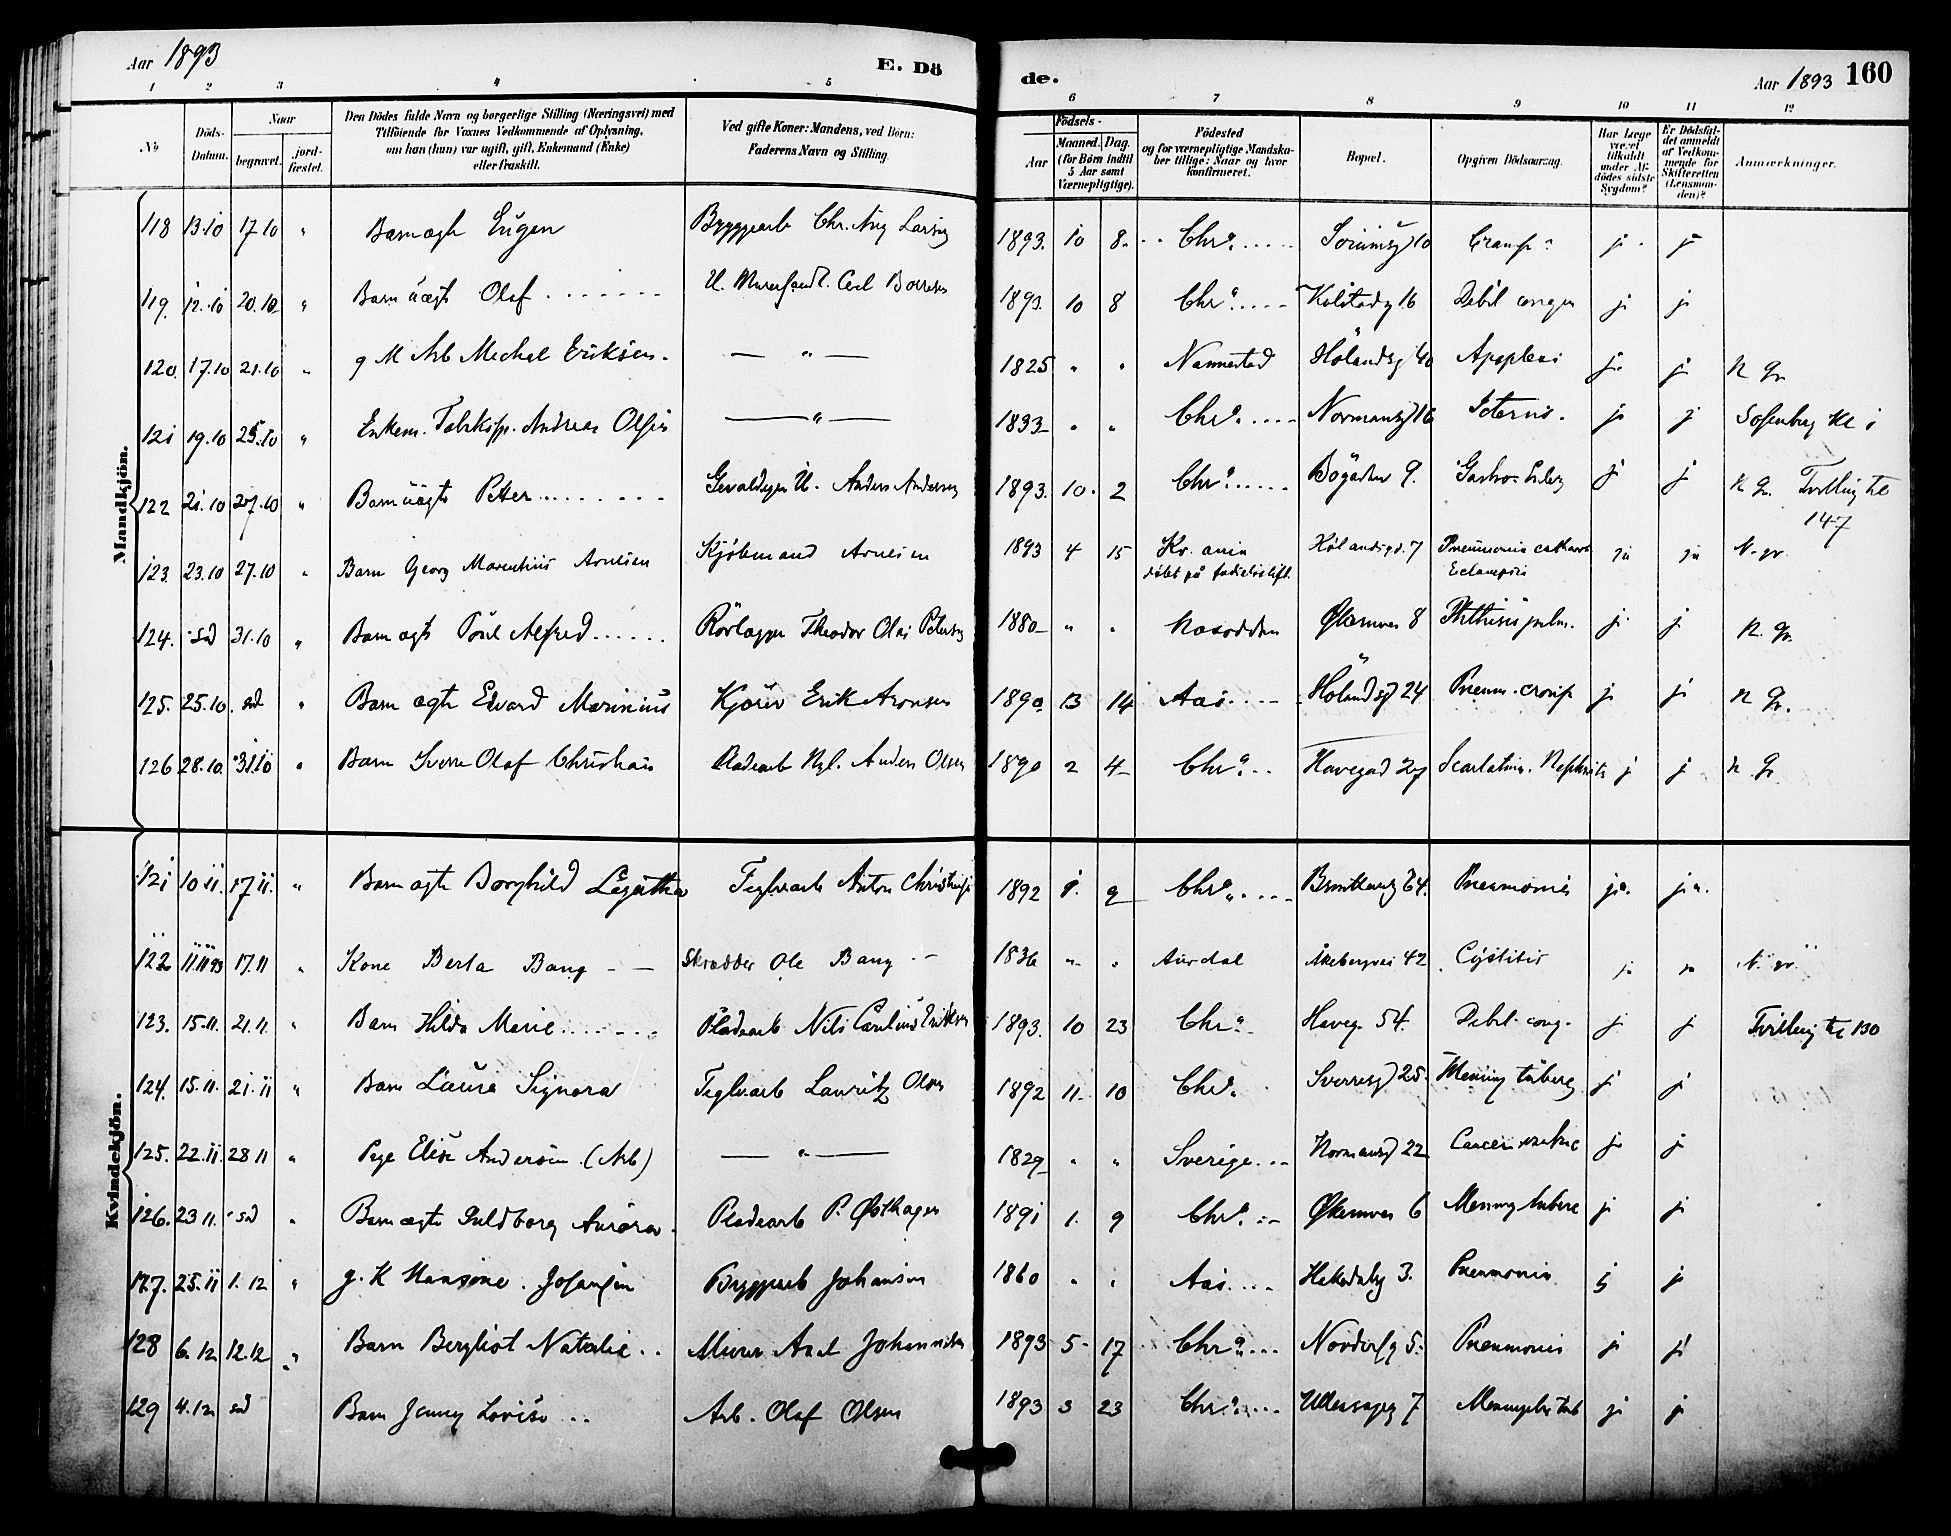 Aar 1893 E. Dö de. Aar 1893 160
1 2 3 4 5 6 7 8 9 10 11 12
No
Döds-Datum.
Naar begravet. jord-fæstet.
Den Dödes fulde Navn og borgerlige Stilling (Næringsvei) med
Tilföiende for Voxnes Vedkommende af Oplysning,
om han (hun) var ugift, gift, Enkemand (Enke)
eller fraskilt.
Ved gifte Koner: Mandens, ved Börn:
Faderens Navn og Stilling.
Födsels-
Aar Maaned. Dag.
(for Börn indtil
5 Aar samt
Værnepligtige).
Födested
og for værnepligtige Mandska-
ber tillige: Naar og hvor
konfirmeret.
Bopæl.
Opgiven Dödsaarsag.
Har Læge
været
tilkaldt
under Af-
dödes sidste
Sygdom?
Er Dödsfal-
det anmeldt
af Vedkom-
mende for
Skifteretten
(Lensman-
den)?
Anmærkninger.
Mandkjön.
118 13.10 17.10 " Barn ægte Eugen Byggearb Chr. Aug Larsen 1893. 10 8 Chra j. j
119. 12.10 20.10 " Barn uægte Olaf 1893. 10 8 Chra 16 Debil congen j j
120. 17.10 21.10 " g M Arb Mechal Eriksen — " — 1825 " " Nannestad Hölandsg 40 Apoplexi j. j N Gr
121 19.10 25.10 " Enkem. Andreas Olsen — " — 1833 " " Chra Normansg 16 Icterus. j j Sofienberg Kl i
122 21.10 27.10 " Barn uægte Peter U. Anders Andersen 1893. 10. 2 Chra 9. j j N Gr. Tvilling til
147
123. 23.10 27.10 " Barn Georg Marentius Arnesen Kjöbmand Arnesen 1893 4 15 Kr. ania Hölandsgd. 7 Pneumonia catharr ja ja N. gr.
döbt på fødselsstift. Eclampsia
124. sd 31.10 " Barn ægte Poul Alfred Rörlægger Theodor Olai Petersen 1880 " " Næsodden 8 Phthisis pulm. j j N. Gr.
125. 25.10. sd " Barn ægte Edvard Marinius Kjörer Erik Aronsen 1890. 14 Aas Hölandsg 24 Pneum. croup j j N Gr.
126 28.10. 31.10 " Barn Sverre Olaf Christian Anders Olsen 1890 2 4 Chra Havegad 27 Scarlatina. Nephritis j j N. Gr.
Kvindekjön.
121 10 11. 17 11. " Barn ægte Borghild Teglvarb Anton 1892 9 Chra 64. Pneumonia ja. ja.
122 11.11 93 17.11 " Kone Berta Bang Skrædder Ole Bang 1836 " " Aurdal Åkebergvei 42 Cystitis ja ja N. gr.
123. 15.11. 21.11. " Barn Hilda Marie Pladearb Nils Carelius Eriksen 1893. 10 23 Chra Haveg. 54. Debil. cong. j j Tvilling til 130
124. 15.11. 21.11 " Barn Laura Signora Teglvarb Lauritz Olsen 1892 11 10 Chra. Sverresg 25. Mening tuberc j j
125. 22.11. 28 11 " Pige Elise Andersen (Arb) — " — 1829 " " Sverige Normansg 22 Cancer j j
126. 23 11. sd " Barn ægte Guldborg Aurora Pladearb P. Østhagen 1891 1. 9 Chra. 6 Mening tuberc j j
127. 25.11 1.12 " g. K Hansine Johansen Byggearb Johansen 1860 " " Aas Hakedalsg 3. Pneumonia j j
128 6.12 12.12 " Barn Bergliot Natalie Murer Axel Johannesen 1893 5 17 Chra 5. Pneumonia j j
129 4.12 sd Barn Jenny Lovise Arb. Olaf Olsen 1893 3 23 Chra 7 j j